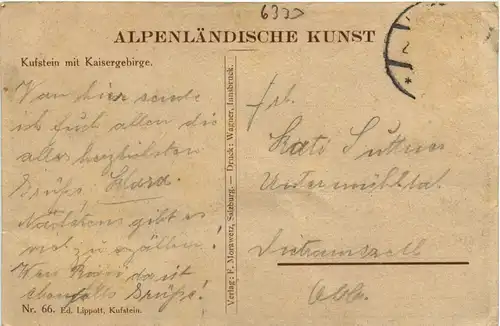 6330
ALPENLÄNDISCHE KUNST
Kufstein mit Kaisergebirge.
Von hier sende
ich Euch allen die
allerherzlichsten
Grüße,
Nächstens gibt es
viel zu
ebenfalls Grüße!
Nr. 66. Ed. Lippott, Kufstein.
Verlag: F. Morawetz, Salzburg. — Druck: Wagner, Innsbruck.
Frl.
Kati Suttner
Untermühltal
Dietramszell
Obb.